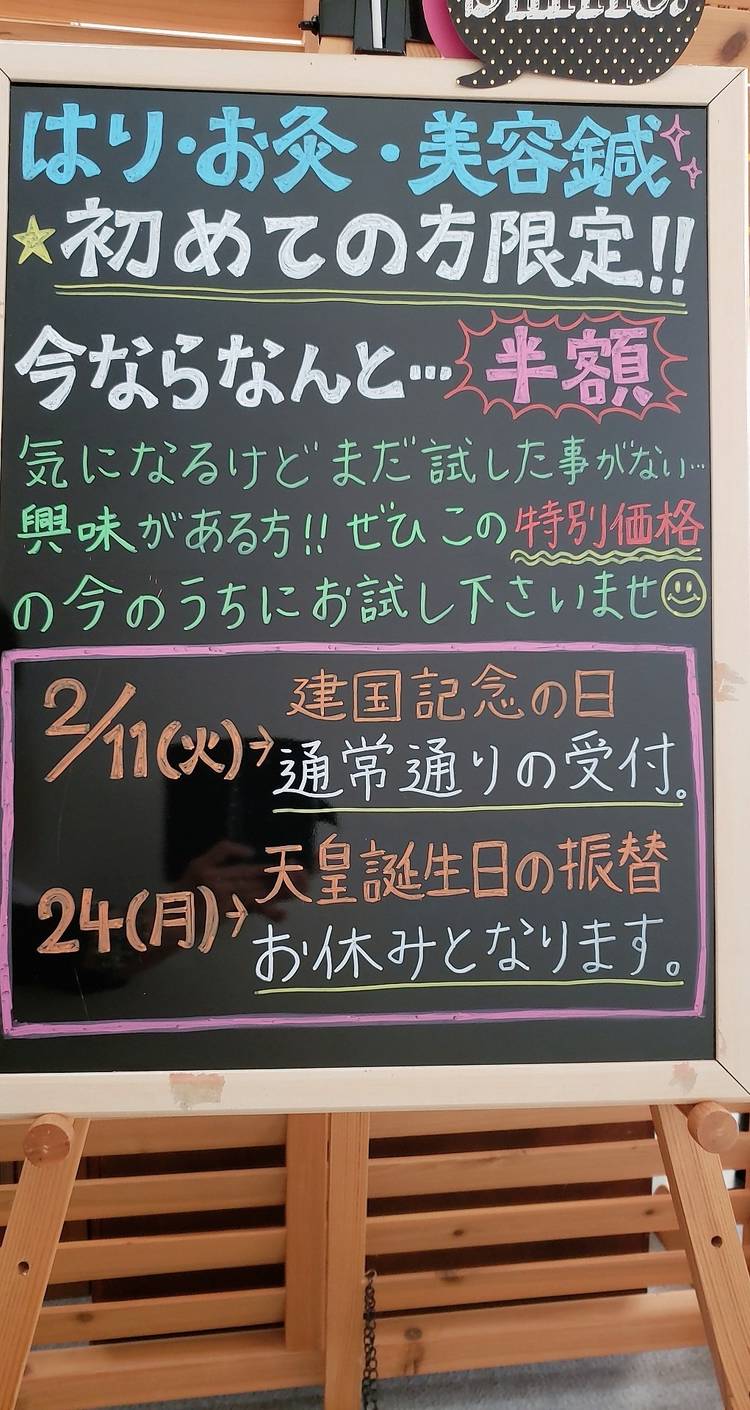 はり・お灸・美容鍼
★初めての方限定!!
今ならなんと…半額
気になるけどまだ試した事がない…
興味がある方!!ぜひこの特別価格
の今のうちにお試し下さいませ☺
2/11(火)→建国記念の日
通常通りの受付。
24(月)→天皇誕生日の振替
お休みとなります。